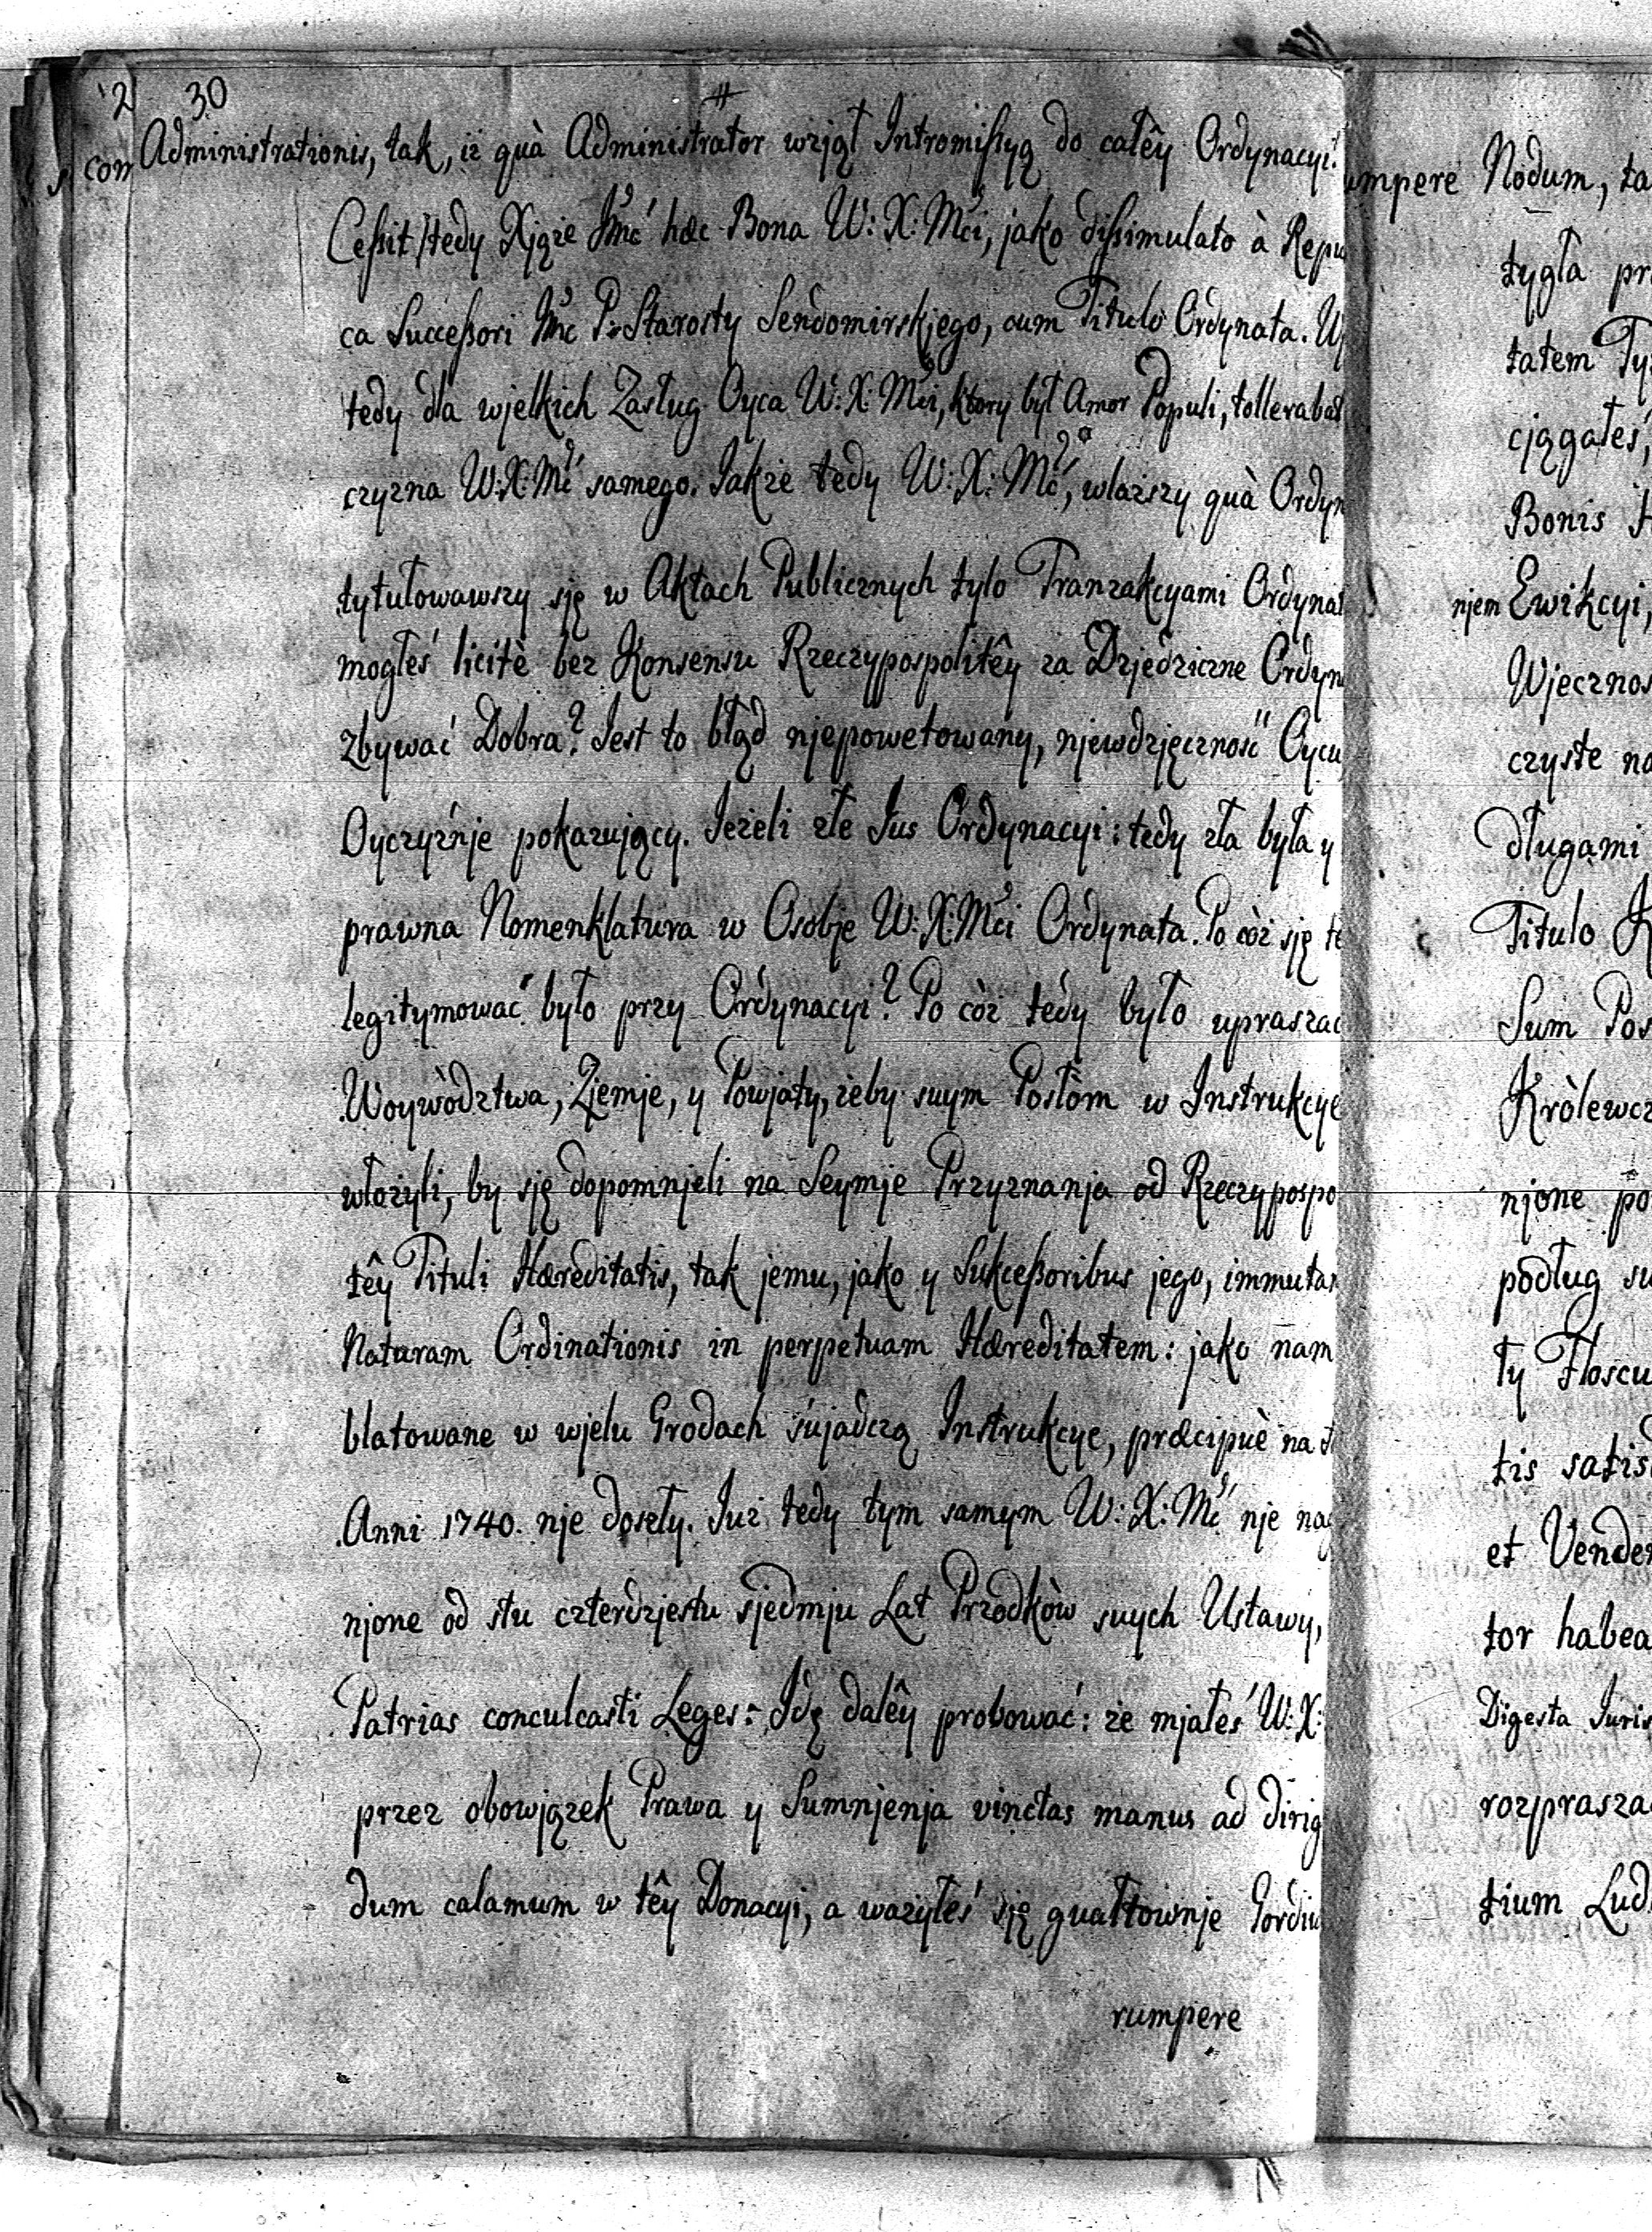 '2 30
con Administrationis, tak, iż quà Administrator wzjął Intromißyą do całêy Ordynacyi.
Ceßit tedy Xjąże Jmć hæc Bona W: X: Mći, jako dißimulato à Repu
ca Succeßori Jmć P: Starosty Sendomirskjego, cum Titulo Ordynata. W
tedy dla wjelkich Zasług Oyca W: X: Mći, ktory był Amor Populi, tollerabat
czyzna W: X: Mć samego. Jakże tedy W: X: Mć, wlazszy quà Ordyn
tytułowawszy sję w Aktach Publicznych tylo Tranzakcyami Ordynat
mogłeś licitè bez Konsensu Rzeczypospolitêy za Dzjedziczne Ordyn
zbywać Dobra? Jest to błąd njepowetowány, njewdzjęczność Oycu
Oyczyźnje pokazujący. Jeżeli złe Jus Ordynacyi: tedy zła była y
prawna Nomenklatura w Osobje W: X: Mći Ordynata. Po còż sję te
legitymować było przy Ordynacyi? Po còż tédy było upraszac
Woywòdztwa, Zjemje, y Powjaty, żeby swym Posłòm w Instrukcye
włożyli, by sję dopomnjeli na Seymje Przyznanja od Rzeczypospo
têy Tituli Hæreditatis, tak jemu, jako y Sukceßoribus jego, immutan
Naturam Ordinationis in perpetuam Hæreditatem: jako nam
blatowane w wjelu Grodach śwjadczą Instrukcye, præcipuè na
Anni 1740. nje doszły. Już tedy tym samym W: X: Mć nje nag
njone od stu czterdzjestu sjedmju Lat Przodkòw swych Ustawy,
Patrias conculcasti Leges: Jdę dalêy probować: że mjałeś W: X:
przez obowjązek Prawa y Sumnjenja vinctas manus ad dirig
dum calamum w têy Donacyi, a ważyłeś sję gwałtownje Gordiu
rumpere
umpere Nodum, ta
tygła pr
tatem Ty
cjągałeś,
Bonis H
njem Ewikcyi,
Wjecznos
czyste na
długami
Titulo K
Sum Pos
Kròlewcz
njone po
podług su
ty Floscu
tis satis
et Vender
tor habea
Digesta Juris
rozprasza
tium Lud